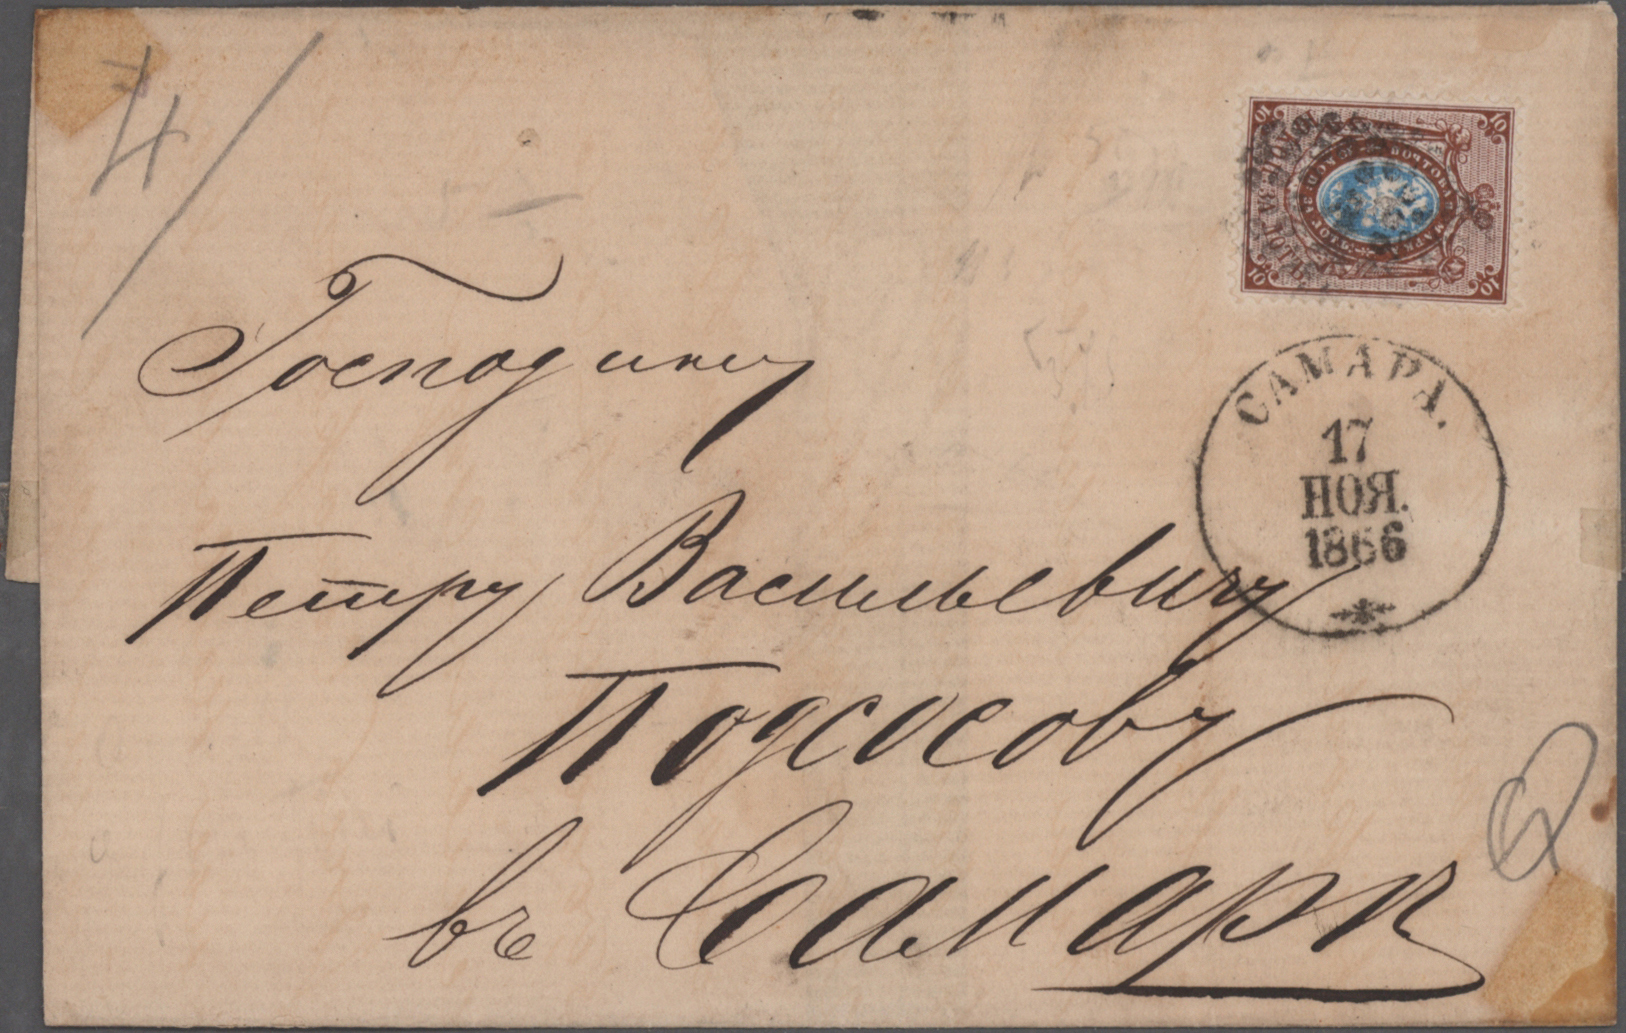 4/
10 10
10 10
САМАРА.
17
НОЯ.
1866
Господину
Петру Васильевичу
Подсосову
въ Самарѣ